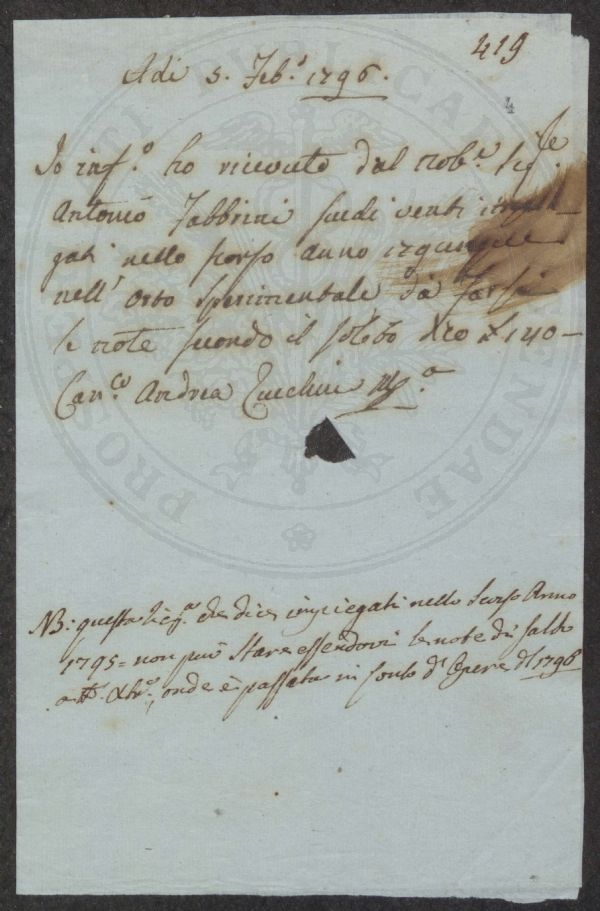 419
Adi 5. Feb.º 1796.
4
Io inf.º ho ricevuto dal Nob.e Sig.re
Antonio Fabbrini scudi venti impie-
gati nello scorso anno
nell' Orto Sperimentale da farsi
le note secondo il solito 140-
Can.co Andrea Zucchini
NB: questa che dice impiegati nello Scorso Anno
1795 = non può Stare essendovi le note di saldo
a tt.º Xbr.e, onde è passata in conto d' Opere del 1796
PROSPERITATI PUBLICAE AUGENDAE